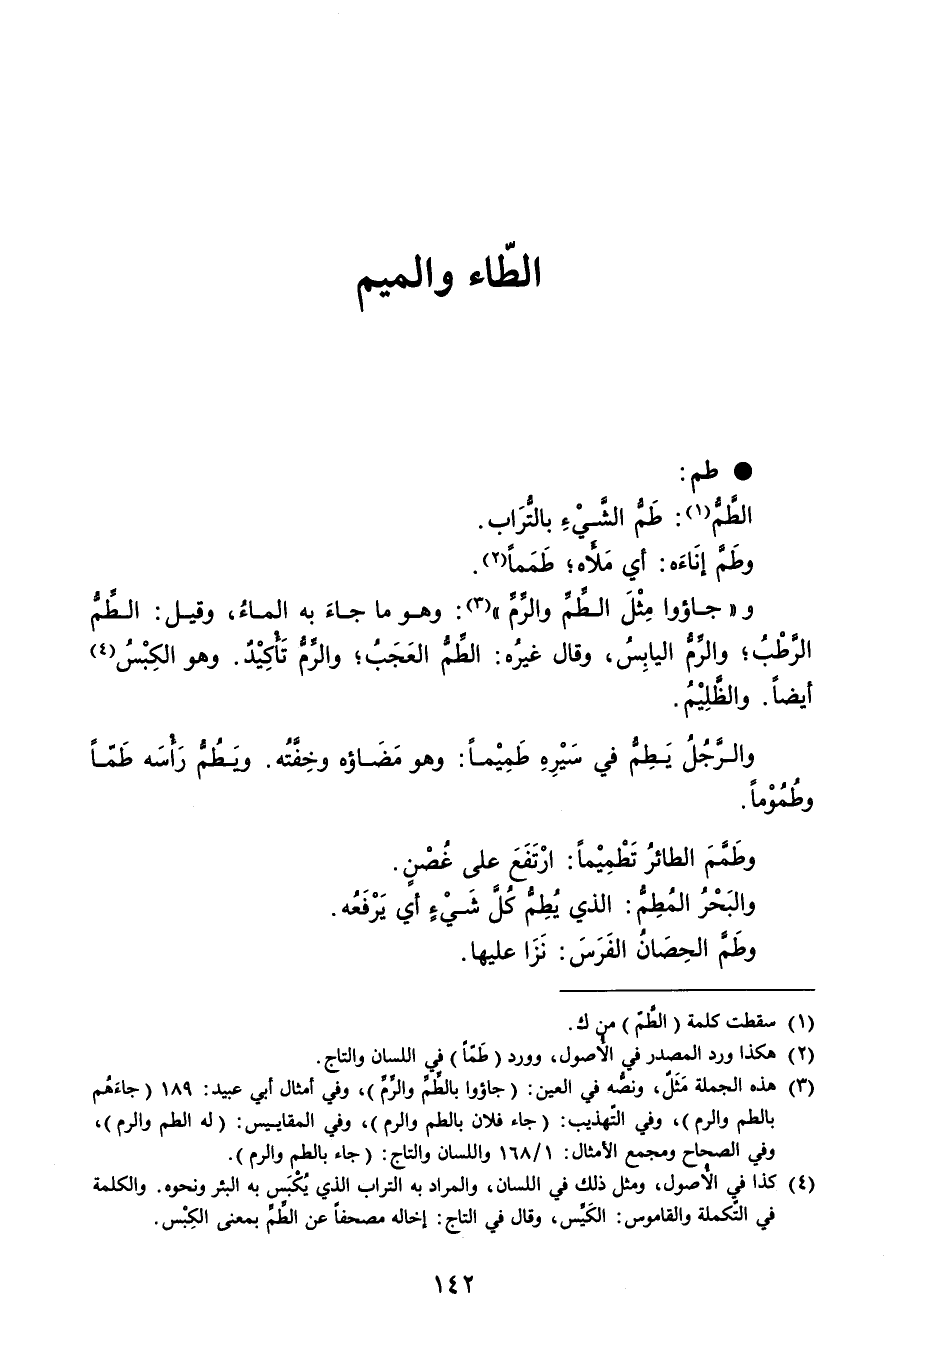 الطّاء والميم
● طم:
الطَّمُّ(١): طَمُّ الشَّيْءِ بالتُّرَاب.
وطَمَّ إنَاءَه: أي مَلَأَه؛ طَمَماً(٢).
و «جاؤوا مِثْلَ الطِّمِّ والرِّمِّ»(٣): وهو ما جاءَ به الماءُ، وقيل: الطِّمُّ
الرَّطْبُ؛ والرِّمُّ اليابِسُ، وقال غيرُه: الطِّمُّ العَجَبُ؛ والرِّمُّ تَأْكِيْدٌ. وهو الكِبْسُ(٤)
أيضاً. والظَّلِيْمُ.
والرَّجُلُ يَطِمُّ في سَيْرِهِ طَمِيْماً: وهو مَضَاؤه وخِفَّتُه. ويَطُمُّ رَأْسَه طَمّاً
وطُمُوْماً.
وطَمَّمَ الطائرُ تَطْمِيْماً: ارْتَفَعَ على غُصْنٍ.
والبَحْرُ المُطِمُّ: الذي يُطِمُّ كُلَّ شَيْءٍ أي يَرْفَعُه.
وطَمَّ الحِصَانُ الفَرَسَ: نَزَا عليها.
(١) سقطت كلمة (الطَّمّ) من ك.
(٢) هكذا ورد المصدر في الأصول، وورد (طَمّاً) في اللسان والتاج.
(٣) هذه الجملة مَثَلٌ، ونصُّه في العين: (جاؤوا بالطِّمِّ والرِّمِّ)، وفي أمثال أبي عبيد: ١٨٩ (جاءَهُم
بالطم والرم)، وفي التّهذيب: (جاء فلان بالطم والرم)، وفي المقاييس: (له الطم والرم)،
وفي الصحاح ومجمع الأمثال: ١٦٨/١ واللسان والتاج: (جاء بالطم والرم).
(٤) كذا في الأصول، ومثل ذلك في اللسان، والمراد به التراب الذي يُكْبَس به البئر ونحوه. والكلمة
في التّكملة والقاموس: الكَيِّس، وقال في التاج: إخاله مصحفاً عن الطِّمِّ بمعنى الكِبْس.
١٤٢